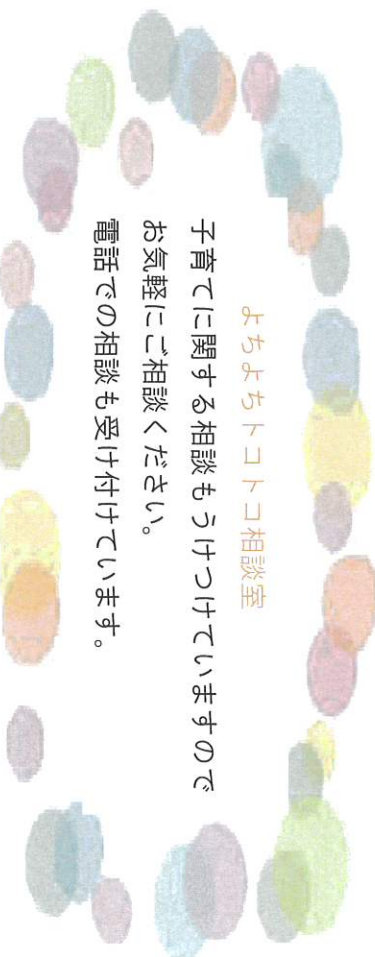 よちよちトコトコ相談室
子育てに関する相談もうけつけていますので
お気軽にご相談ください。
電話での相談も受け付けています。